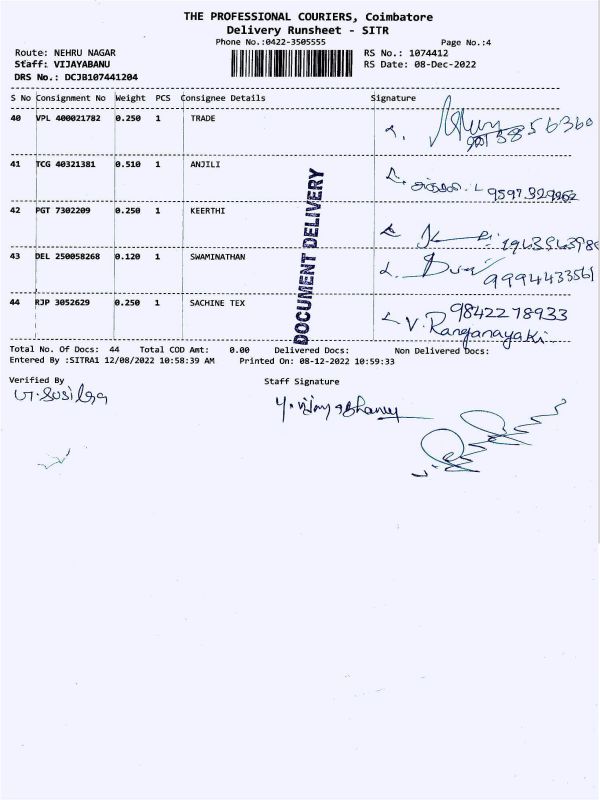 THE PROFESSIONAL COURIERS, Coimbatore
Delivery Runsheet - SITR
Phone No.:0422-3505555 Page No.:4
Route: NEHRU NAGAR RS No.: 1074412
Staff: VIJAYABANU RS Date: 08-Dec-2022
DRS No.: DCJB107441204
S No Consignment No Weight PCS Consignee Details Signature
40 VPL 400021782 0.250 1 TRADE
41 TCG 40321381 0.510 1 ANJILI
9597329962
42 PGT 7302209 0.250 1 KEERTHI
43 DEL 250058268 0.120 1 SWAMINATHAN
9994433561
44 RJP 3052629 0.250 1 SACHINE TEX 9842278933
V. Ranganayaki
DOCUMENT DELIVERY
Total No. Of Docs: 44 Total COD Amt: 0.00 Delivered Docs: Non Delivered Docs:
Entered By :SITRA1 12/08/2022 10:58:39 AM Printed On: 08-12-2022 10:59:33
Verified By Staff Signature